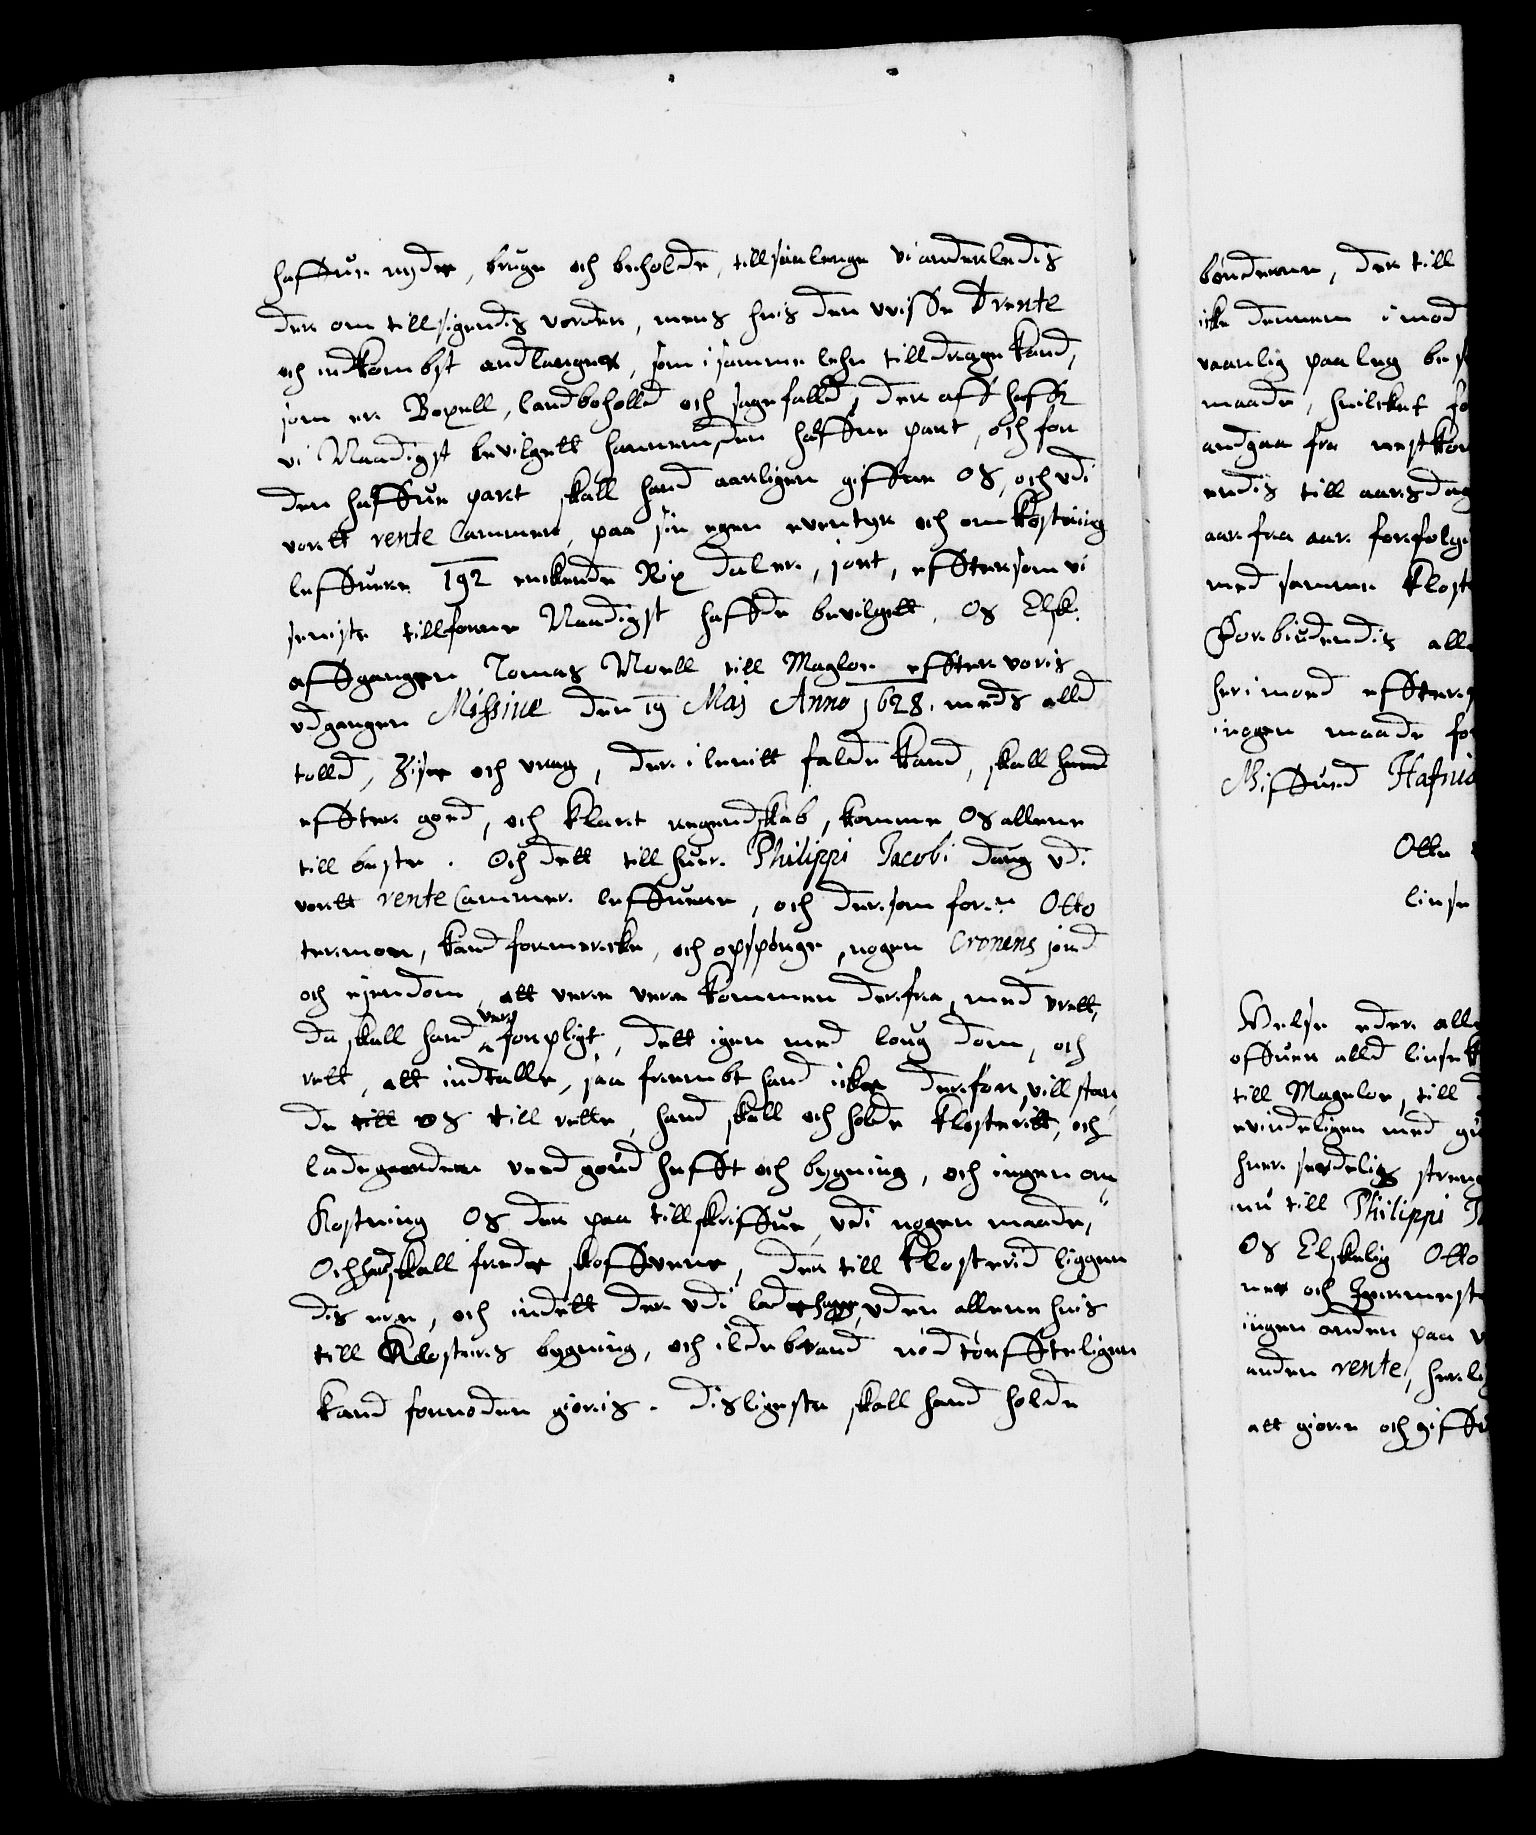 haffue nyde, bruge och beholde, till saa lenge vi anderledis
der om till sigendis vorder, mens huis den uvisse rente
och indkombst andlanger, som i samme lehn till drage kand,
som er Boxell, landboholld och sagefalld, der aff haffr
vi Naadigst bevilgett hannem den halffue part, och for
den halffue part skall hand aarligen giffue OS, och udi
vortt rente Cammer, paa sin egen eventyr och omkostning
leffuere 192 enckende Rix daler, jort, effttersom vi
seniste tillforne Naadigst haffde bevilgett, OS Elsk:
affgangen Tomas Noell till Magloe effter voris
udgangen Missiue den 19 Maj Anno 1628. meds alld
tolld, Zise och vrag, der i lenitt falde kand, skall hand
effter goed, och klart regendskab, komme OS allene
till beste. Och dett till huer Philippi Jacobi daug udi
vortt rente Cammer leffuere, och dersom for:ne Otto
termoen, kand formercke, och opspørge, nogen Cronens jord
och ejendom, att vere vere kommen derfra, med urett,
da skall hand vere forpligt, dett igen med loug dom, och
rett, att indtalle, saa frembt hand icke derfor, vill staa
de till os till rette, hand skall och holde klosteritt, och
ladegaarden ved goud hefft och bygning, och ingen om
Kostning OS der paa tillskriffue, udi nogen maade,
Och hand skall frede skoffuene, der till klosterid liggen
dis ere, och indtett der udi lade hugge, uden allene huis
till Klosters bygning, och ildebrand nødtørffteligen
kand fornøden giøris. Disligeste skall hand holde

bønderne, der till
icke dennem imod
vaanlig paaleg bes
maade, huilckett fo
andgaa fra nestkom
endis till aarsdag
aar fra aar forfølge
med samme Kloste
Forbiudendis alle
herimoed effterss
i nogen maade for
Miffued Hafnia
Otte
linse

Velse eder alle
offuer alld linsek
till Mageloe, till
evindeligen med gu
huer serdelis streng
nu till Philippi J
OS Elskelig Otto
ner och Zeermeste
ingen anden paa v
anden rente, herlig
att giøre och giffu